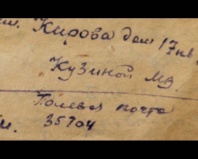 ул. Кирова дом 17 кв.
Кузиной М.
Полевая почта
35704